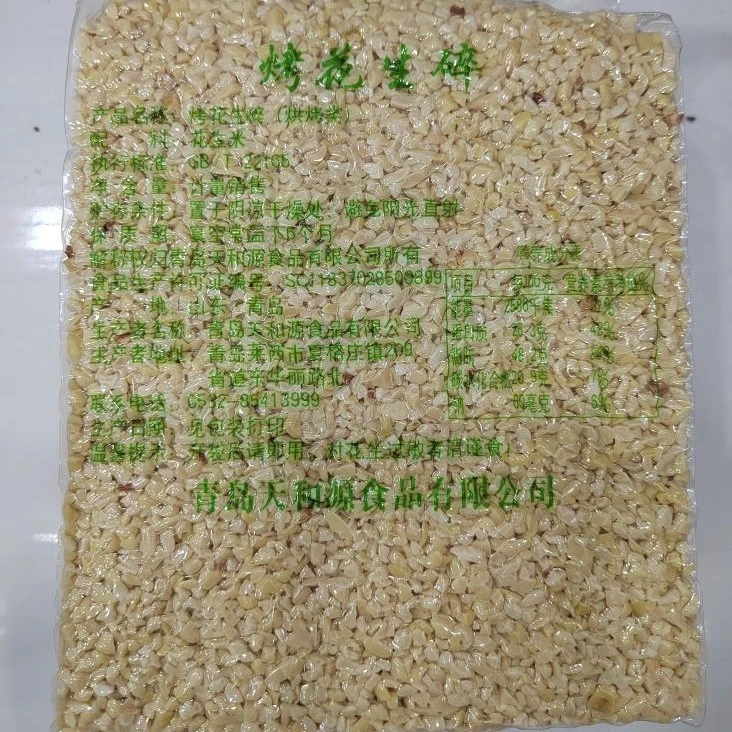 烤花生碎
产品名称：烤花生碎（烘烤类）
配 料：花生米
执行标准：GB/T 22165
净 含 量：计量销售
贮存条件：置于阴凉干燥处，避免阳光直射
保 质 期：真空常温下6个月
解释权归青岛天和源食品有限公司所有
食品生产许可证编号：
产 地：山东 青岛
生产者名称：青岛天和源食品有限公司
生产者地址：青岛莱西市夏格庄镇209
省道东华丽路北
联系电话：0532-85413999
生产日期：见包装打印
温馨提示：开袋后请即用，对花生过敏者请谨食！
营养成分表
项目 营养素参考值%
能量
蛋白质
脂肪
碳水化合物
钠
青岛天和源食品有限公司